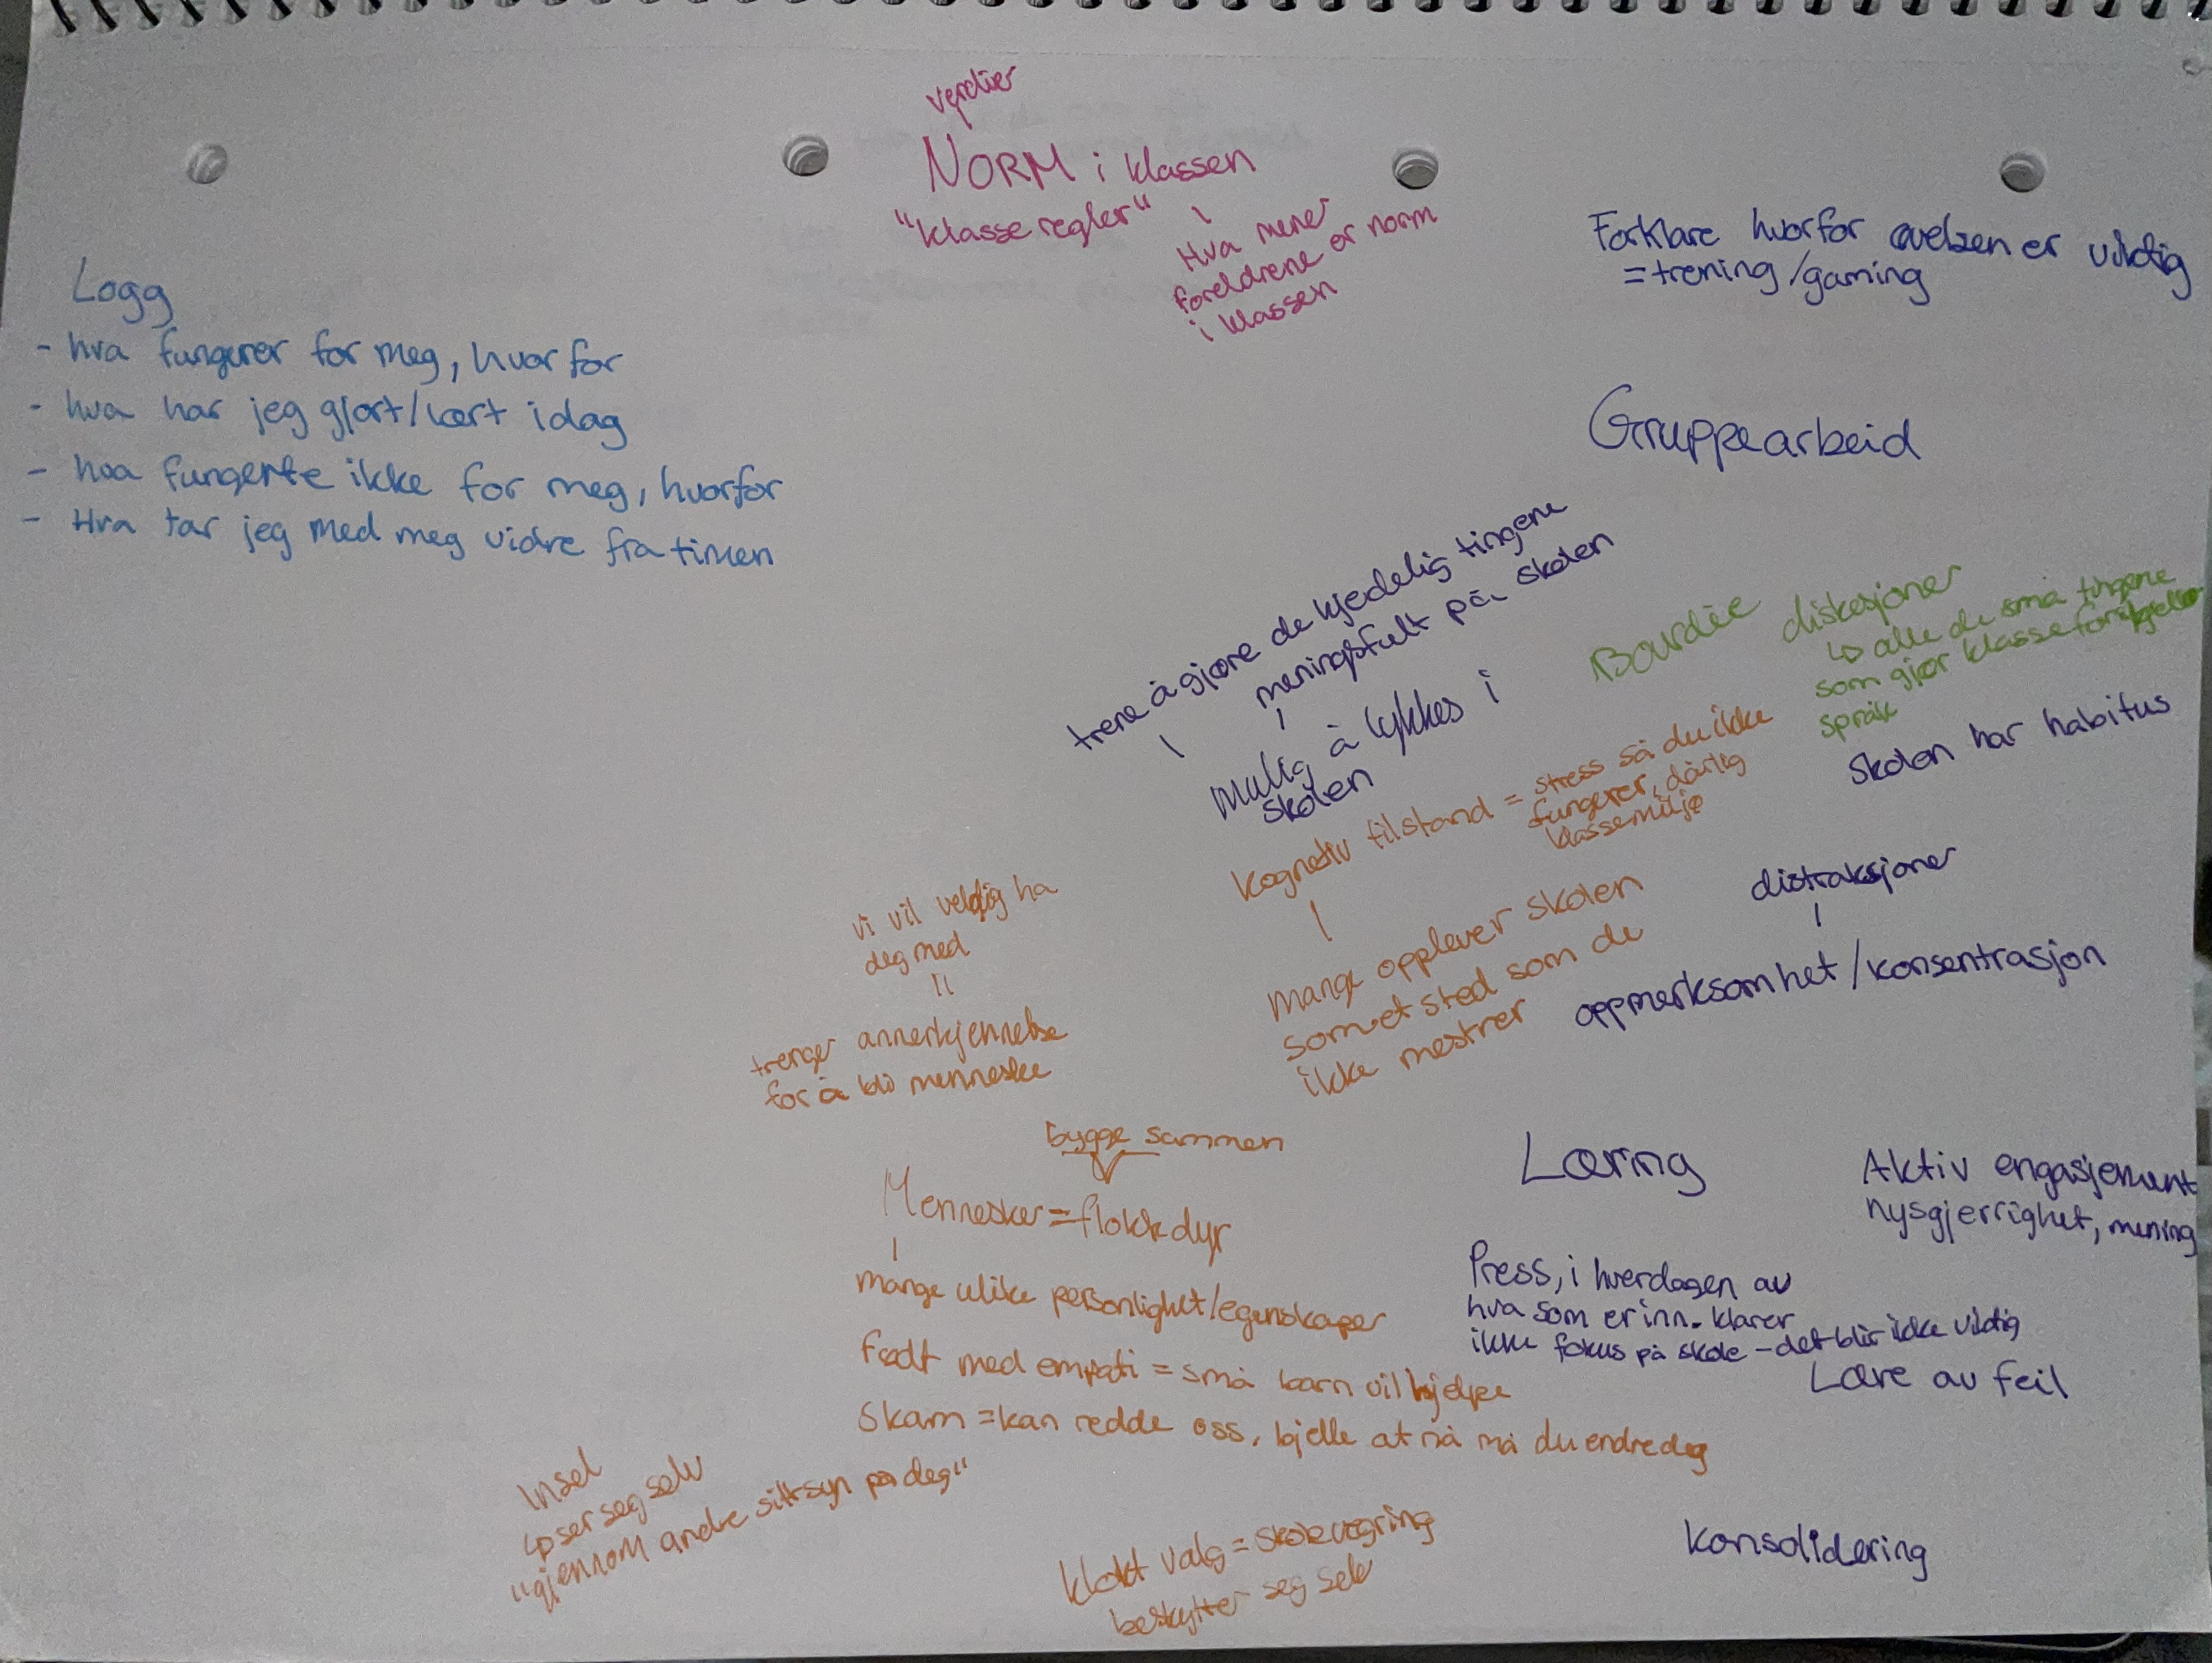 verdier
NORM i klassen
"klasse regler"
Hva mener
foreldrene er norm
i klassen
Forklare hvorfor øvelsen er viktig
= trening/gaming
Logg
- hva fungerer for meg, hvorfor
- hva har jeg gjort/lært idag
- hva fungerte ikke for meg, hvorfor
- Hva tar jeg med meg vidre fra timen
Gruppearbeid
trene å gjøre de kjedelig tingene
meningsfult på skolen
mulig å lykkes i
skolen
Bourdie
diskusjoner
↳ alle de små tingene
som gjør klasseforskjeller
språk
Skolen har habitus
Kognitiv tilstand = stress så du ikke
fungerer, dårlig
klassemiljø
mange opplever skolen
som et sted som de
ikke mestrer
distraksjoner
oppmerksomhet/konsentrasjon
vi vil veldig ha
deg med
=
trenger annerkjennelse
for å bli menneske
bygge sammen
Mennesker = flokkdyr
mange ulike personlighet/egenskaper
født med empati = små barn vil hjelpe
Skam = kan redde oss, bjelle at nå må du endre deg
Læring
Aktiv engasjement
nysgjerrighet, mening
Press, i hverdagen av
hva som er inn. klarer
ikke fokus på skole - det blir ikke viktig
Lære av feil
Insel
↳ ser seg selv
"gjennom andre sitt syn på deg"
klokt valg = skolevegring
beskytter seg selv
Konsolidering